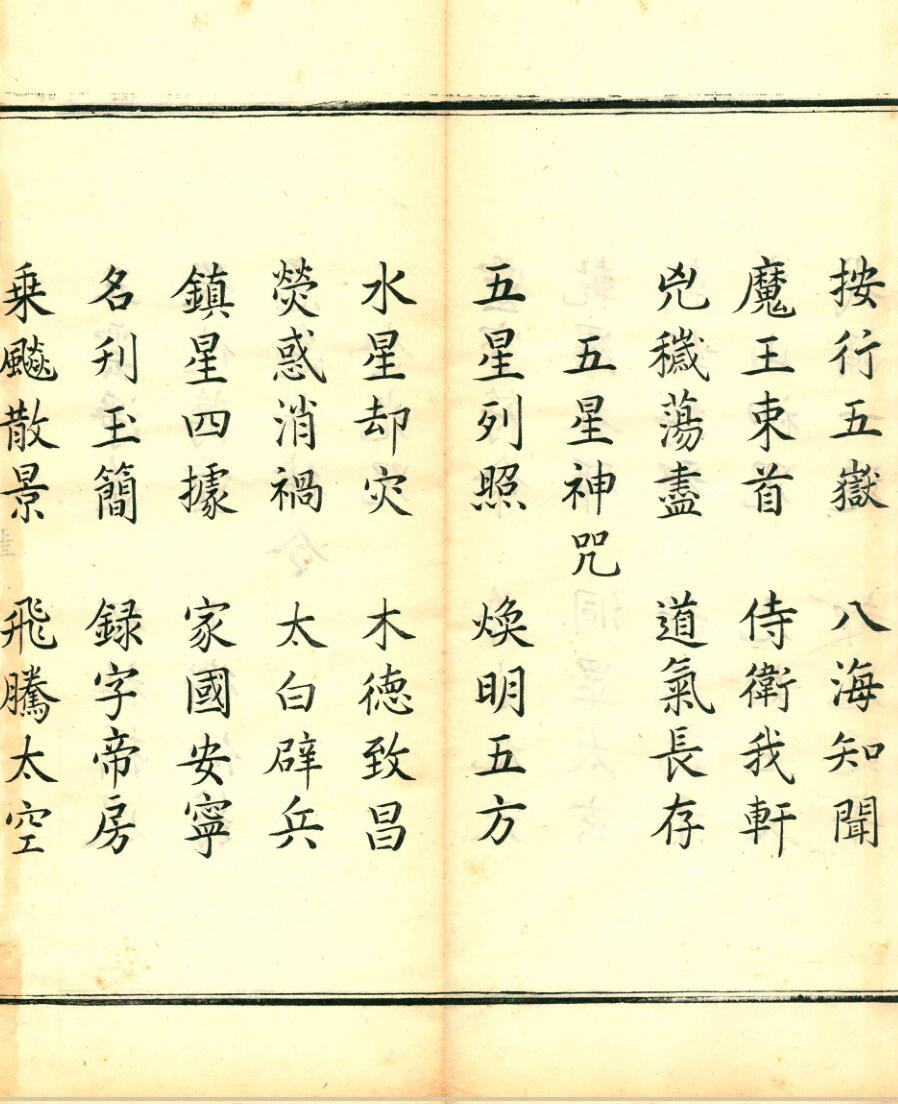 按行五嶽　八海知聞
魔王束首　侍衛我軒
兇穢蕩盡　道氣長存
五星神咒
五星列照　煥明五方
水星却灾　木德致昌
熒惑消禍　太白辟兵
鎮星四據　家國安寧
名刋玉簡　録字帝房
乗飈散景　飛騰太空